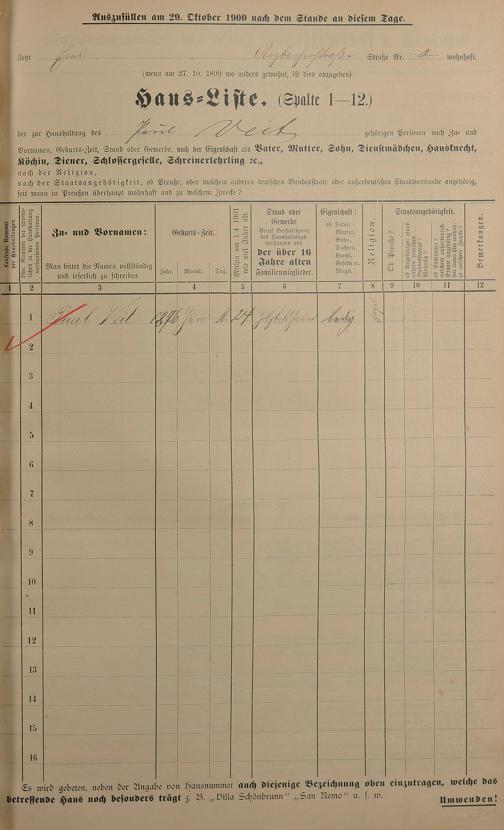 Auszufüllen am 29. Oktober 1900 nach dem Stande an diesem Tage.
Jetzt Ems Straße Nr. 8 wohnhaft.
(wenn am 27. 10. 1899 wo anders gewohnt, ist dies anzugeben)
Haus-Liste. (Spalte 1—12.)
der zur Haushaltung des Paul Veit gehörigen Personen nach Zu- und
Vornamen, Geburts-Zeit, Stand oder Gewerbe, nach der Eigenschaft als Vater, Mutter, Sohn, Dienstmädchen, Hausknecht,
Köchin, Diener, Schlossergeselle, Schreinerlehrling ꝛc.,
nach der Religion,
nach der Staatsangehörigkeit, ob Preuße, oder welchem anderen deutschen Bundesstaate oder außerdeutschen Staatsverbande angehörig,
seit wann in Preußen überhaupt wohnhaft und zu welchem Zwecke?
Zu- und Vornamen:
Man bittet die Namen vollständig
und leserlich zu schreiben.
Geburts-Zeit.
Jahr. Monat. Tag
Within am 1./4. 1901
wie viel Jahre alt.
Stand oder
Gewerbe
der über 16
Jahre alten
Familienglieder.
Eigenschaft:
ob Vater,
Mutter,
Sohn,
Tochter,
Knecht,
Geselle ꝛc.
Magd.
Religion.
Staatsangehörigkeit.
Ob Preuße?
Bemerkungen.
1 2 3 4 5 6 7 8 9 10 11 12
1 Paul Veit 1876 Juni 24 ledig
2
3
4
5
6
7
8
9
10
11
12
13
14
15
16
Es wird gebeten, neben der Angabe von Hausnummer auch diejenige Bezeichnung oben einzutragen, welche das
betreffende Haus noch besonders trägt z. B. „Villa Schönbrunn“ „San Remo“ u. s. w.
Umwenden!